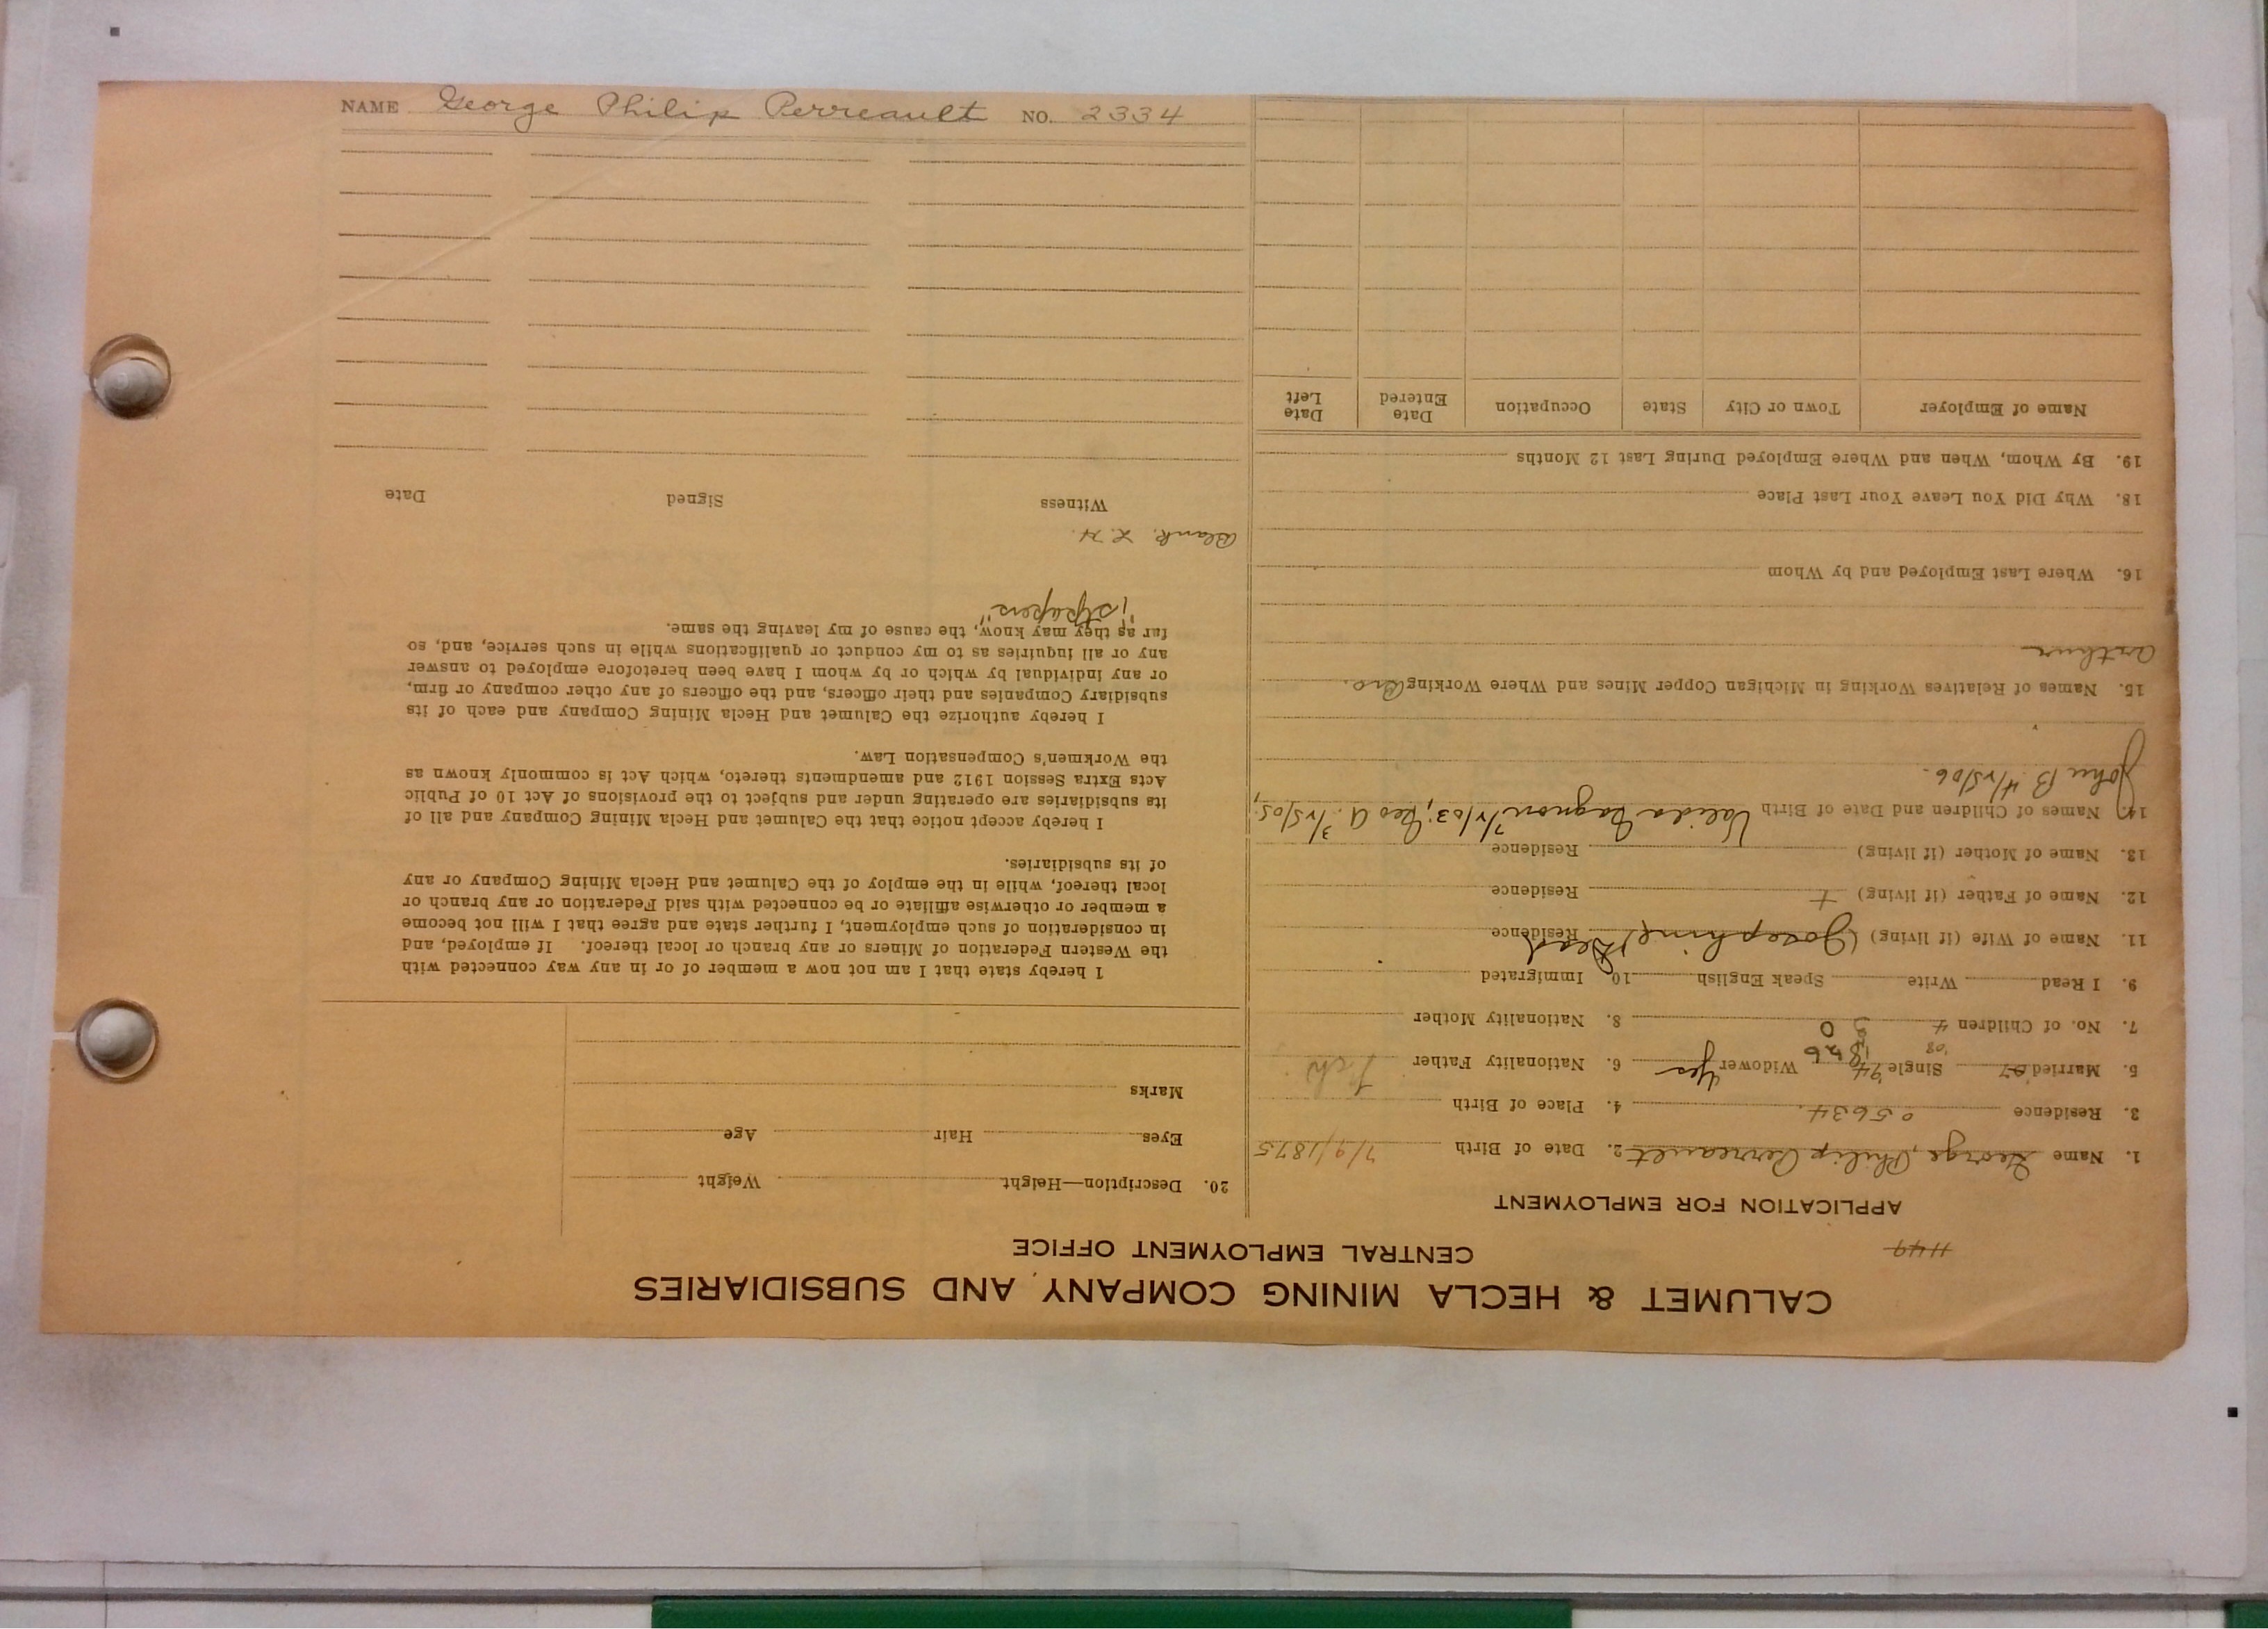 NAME George Philip Perreault NO. 2334
CALUMET & HECLA MINING COMPANY AND SUBSIDIARIES
CENTRAL EMPLOYMENT OFFICE
1149
APPLICATION FOR EMPLOYMENT
1. Name George, Philip Perreault 2. Date of Birth 7/9/1875
3. Residence 05634. 4. Place of Birth
5. Married Single Widower Yes 6. Nationality Father Fch
'08
7. No. of Children 8. Nationality Mother
9. I Read Write Speak English 10. Immigrated
11. Name of Wife (if living) (Josephine) Dead Residence
12. Name of Father (if living) + Residence
13. Name of Mother (if living) Residence
14. Names of Children and Date of Birth Valida Gagnon Geo A.
John B
15. Names of Relatives Working in Michigan Copper Mines and Where Working Bro.
Arthur
16. Where Last Employed and by Whom
18. Why Did You Leave Your Last Place
19. By Whom, When and Where Employed During Last 12 Months
Name of Employer Town or City State Occupation Date Entered Date Left
20. Description—Height Weight
Eyes Hair Age
Marks
I hereby state that I am not now a member of or in any way connected with
the Western Federation of Miners or any branch or local thereof. If employed, and
in consideration of such employment, I further state and agree that I will not become
a member or otherwise affiliate or be connected with said Federation or any branch or
local thereof, while in the employ of the Calumet and Hecla Mining Company or any
of its subsidiaries.
I hereby accept notice that the Calumet and Hecla Mining Company and all of
its subsidiaries are operating under and subject to the provisions of Act 10 of Public
Acts Extra Session 1912 and amendments thereto, which Act is commonly known as
the Workmen's Compensation Law.
I hereby authorize the Calumet and Hecla Mining Company and each of its
subsidiary Companies and their officers, and the officers of any other company or firm,
or any individual by which or by whom I have been heretofore employed to answer
any or all inquiries as to my conduct or qualifications while in such service, and, so
far as they may know, the cause of my leaving the same.
"1st papers"
Blank. L.H.
Witness Signed Date